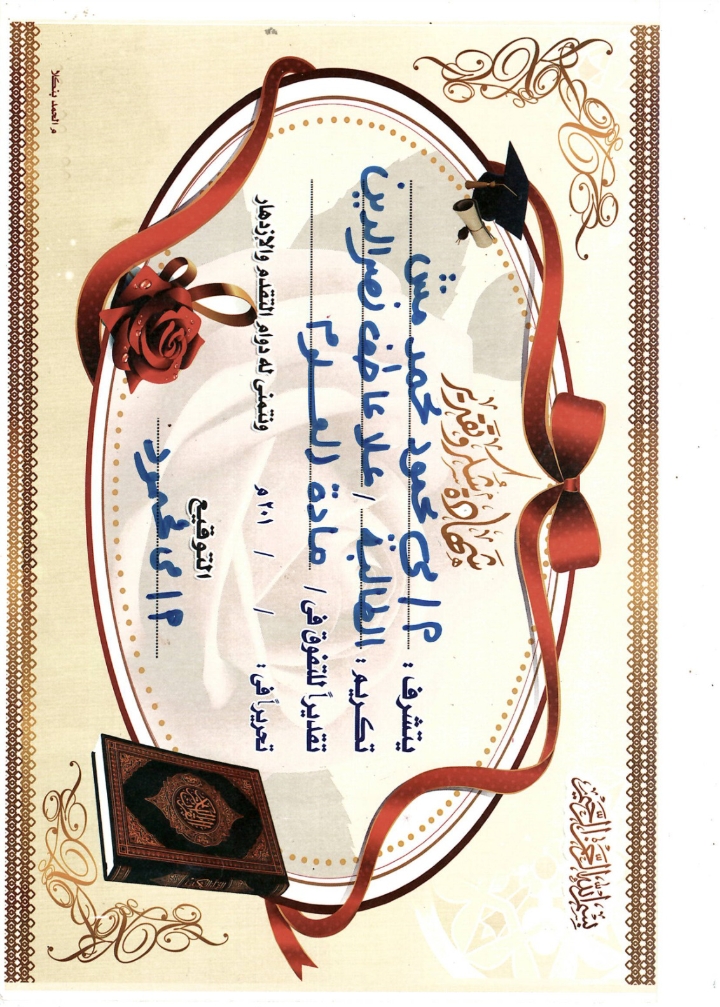 بسم الله الرحمن الرحيم
شهادة شكر وتقدير
يتشرف : م / مي محمود محمد
تكريم : الطالبة / علا عاطف نصر الدين
تقديراً للتفوق فى / مادة العلوم
تحريراً فى : / / ٢٠١ م ونتمنى له دوام التقدم والإزدهار
التوقيع
م / مى محمود
م الحمد بنكلا